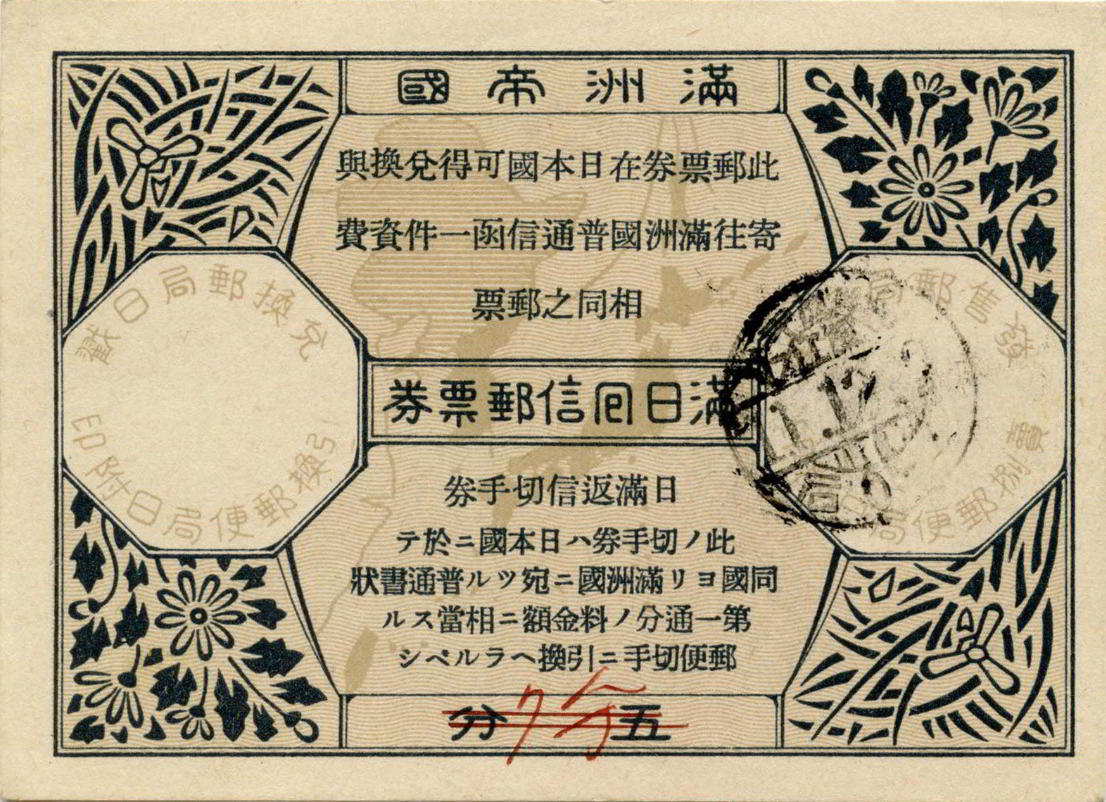 滿洲帝國
此郵票券在日本國可得兌換與
寄往滿洲國普通信函一件資費
相同之郵票
滿日囘信郵票券
日滿返信切手券
此ノ切手券ハ日本國ニ於テ
同國ヨリ滿洲國ニ宛ツル普通書狀
第一通分ノ料金額ニ相當スル
郵便切手ニ引換ヘラルベシ
五分
發售郵局
賣捌郵便局
兌換郵局日戳
引換郵便局日附印